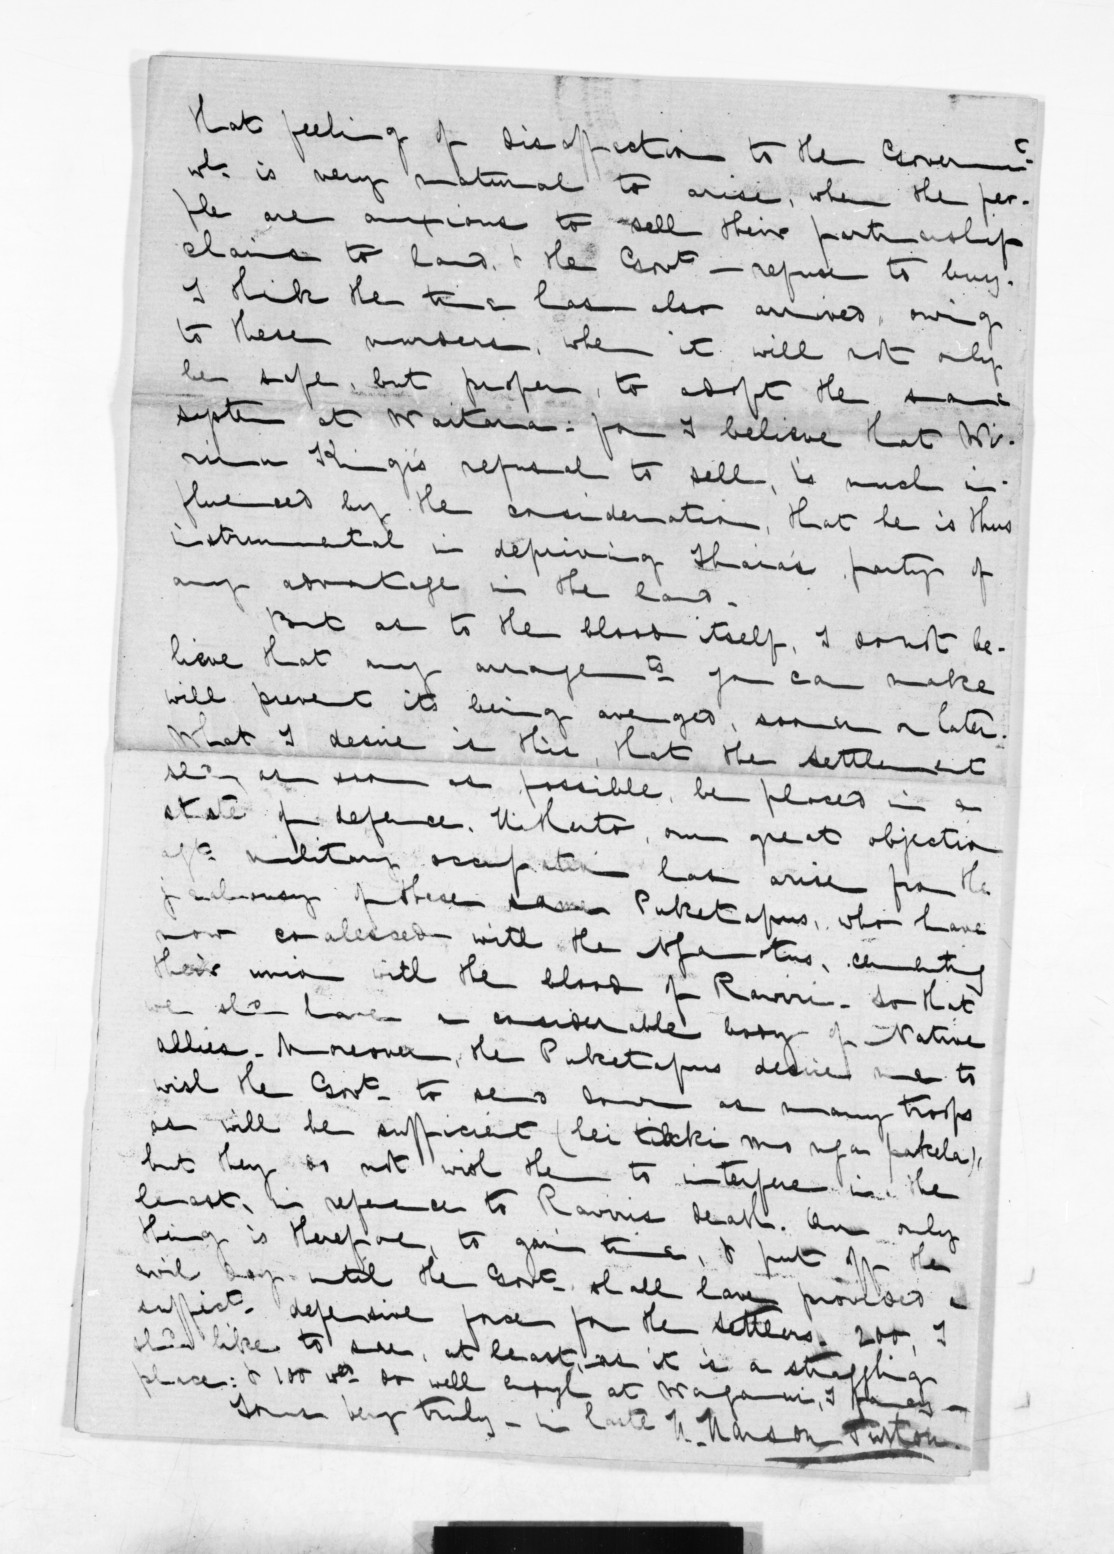 that feeling of disaffection to the Governmt.
wh. is very natural to arise, when the peo-
ple are anxious to sell their partnership
claims to land, & the Govt. refuse to buy.
I think the time has also arrived, owing
to these murders, when it will not only
be safe, but proper, to adopt the same
system at Waitara: for I believe that Wi-
rimu Kingi's refusal to sell, is much in-
fluenced by the consideration, that he is thus
instrumental in depriving Ihaia's party of
any advantage in the land.
But as to the blood itself, I do not be-
lieve that any arrangemts. you can make
will prevent its being avenged, sooner or later.
What I desire is this, that the settlement
shd. as soon as possible, be placed in a
state of defence. Hitherto, our great objection
military occupation has arisen from the
jealousy of these same Puketapus, who have
now coalesced with the Ngamotus, cementing
their union with the blood of Rawiri. So that
we shd. have a considerable body of Native
allies. Moreover, the Puketapus desired me to
wish the Govt. to send down as many troops
as will be sufficient (hei tiaki mo nga pakeha),
but they do not wish them to interfere in the
least, in reference to Rawiri's death. Our only
thing is therefore, to gain time, & put off the
evil day until the Govt. shall have provided a
suffict. defensive force for the settlers. 200, I
shd. like to see, at least, as it is a straggling
place: & 100 wd. do well enough at Waganui, I fancy.
Yours very truly - in haste H. Hanson Turton.